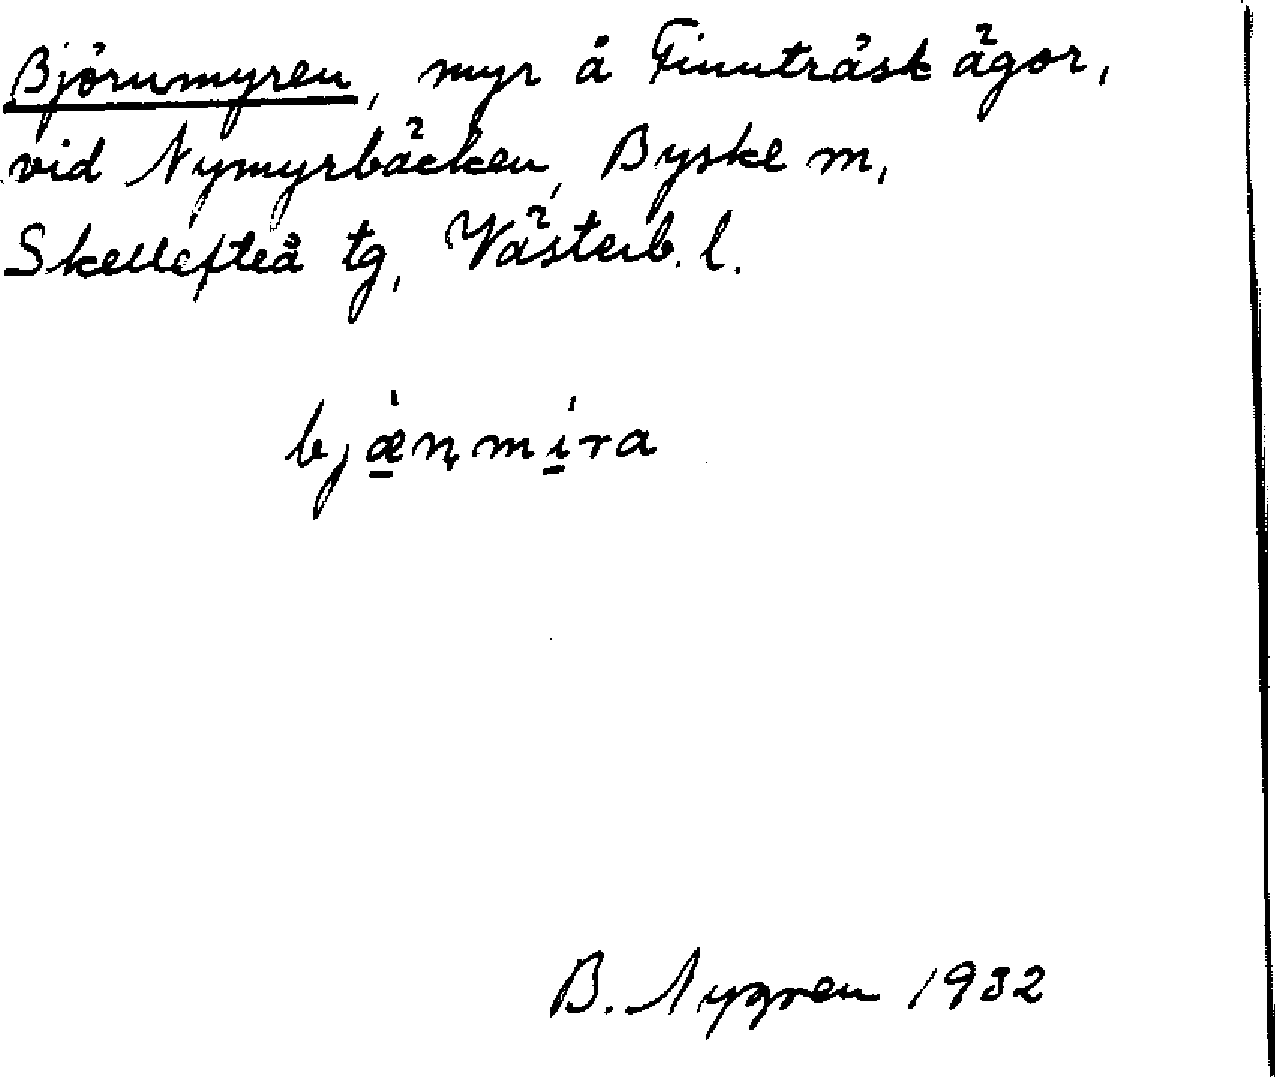 Björnmyren, myr å Finnträsk ägor,
vid Nymyrbäcken, Byske m,
Skellefteå tg, Västerb. l.
bjæ̠̀ṇmı̠́ra
B. Nygren 1932